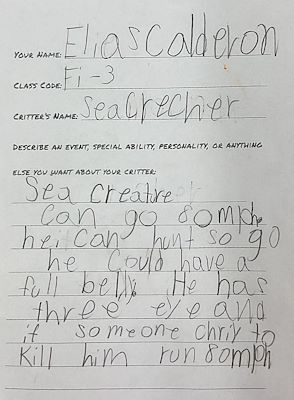 YOUR NAME: Elias Calderon
CLASS CODE: Fi-3
CRITTER'S NAME: Seacrecher
DESCRIBE AN EVENT, SPECIAL ABILITY, PERSONALITY, OR ANYTHING
ELSE YOU WANT ABOUT YOUR CRITTER:
Sea Creature
Can go 80mph
hei can hunt so go
he could have a
full belly. He has
three eye and
if someone chriy to
Kill him run 80mph